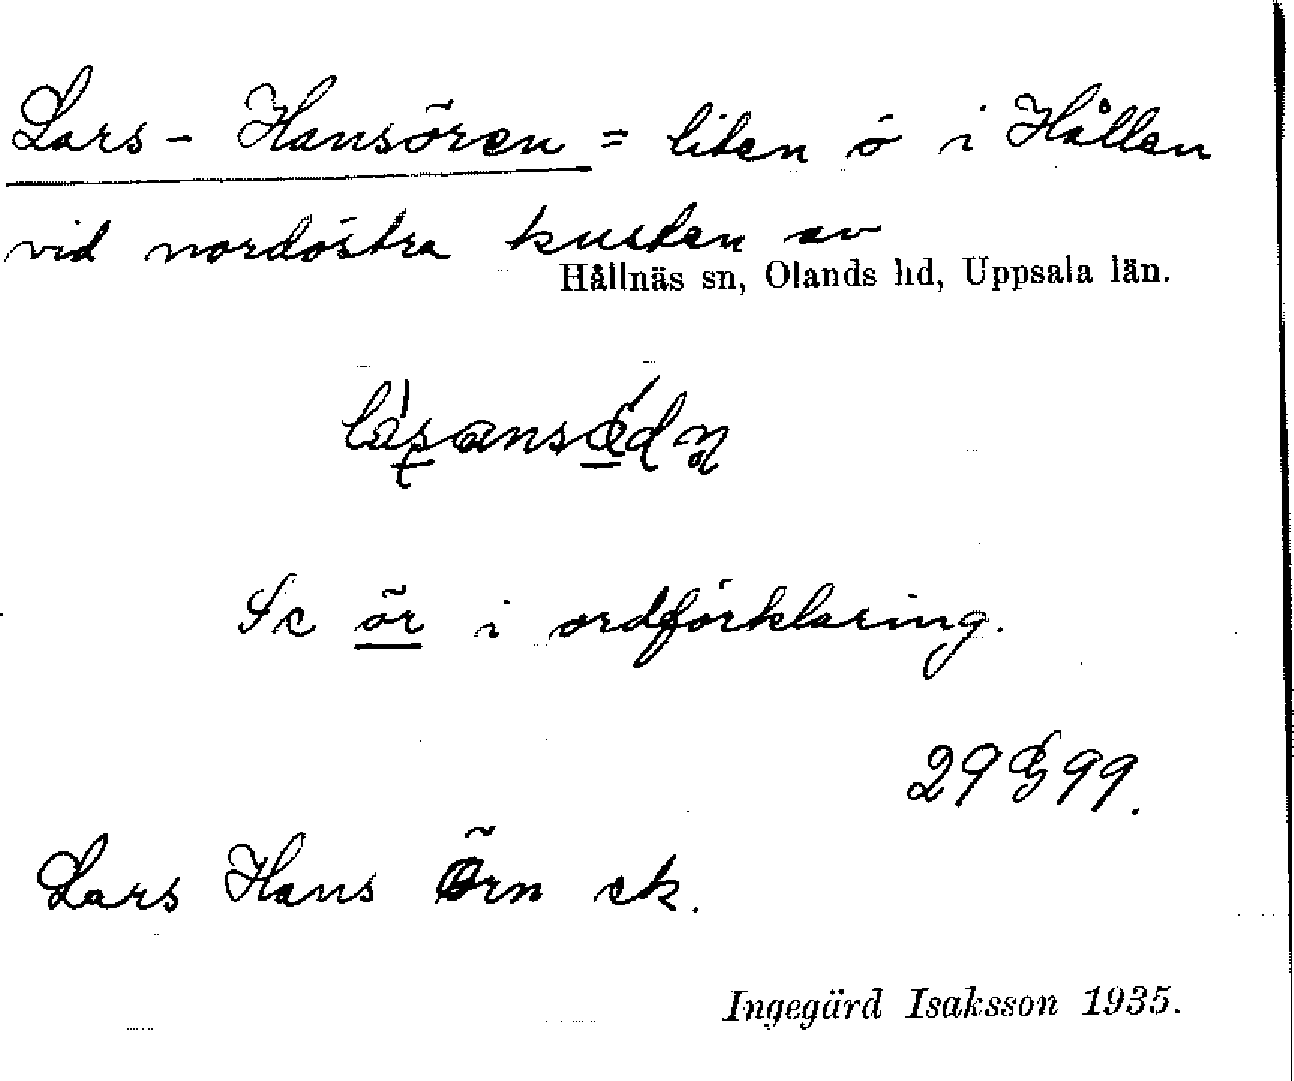 Lars-Hansören = liten ö i Hållen
vid nordöstra kusten av
Hållnäs sn, Olands hd, Uppsala län.
Se ör i ordförklaring.
29 G 99.
Lars Hans Örn ek.
Ingegärd Isaksson 1935.